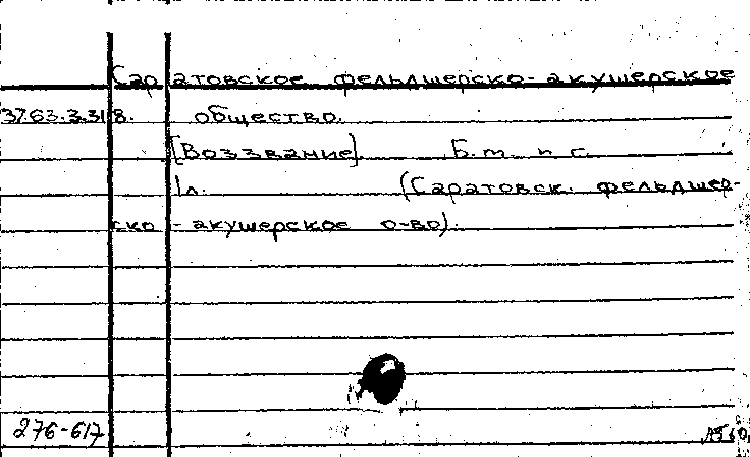 Саратовское фельдшерско-акушерское
37.63.3.318. общество.
[Воззвание]. Б.м. п г.
1л. (Саратовск. фельдшер-
ско-акушерское о-во).
276-617